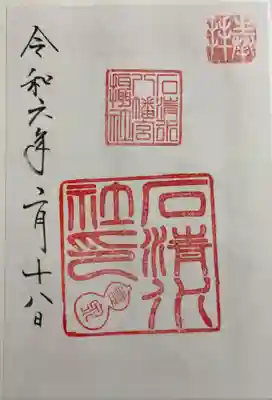 奉拝
石清水
八幡宮
攝社
石清水
社印
令和六年二月十八日